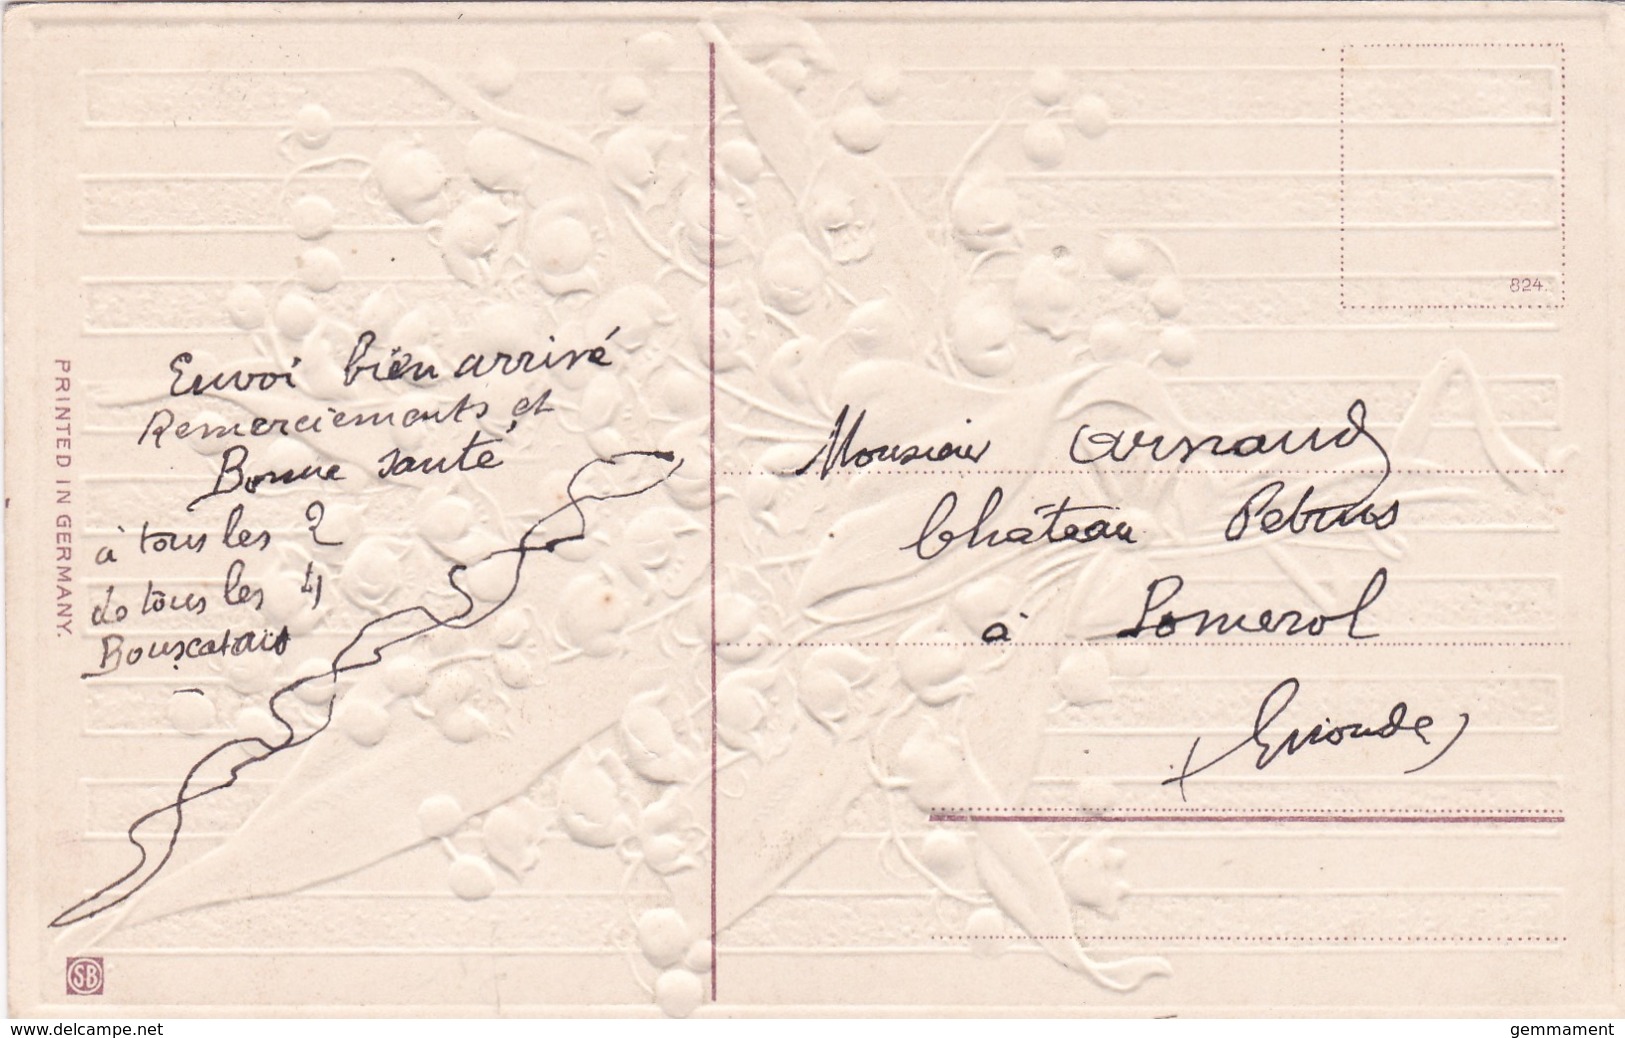 Envoi bien arrivé
Remerciements et
Bonne santé
à tous les 2
de tous les 4
Bouscatais
Monsieur Arnaud
Château Petrus
à Pomerol
Gironde
824.
PRINTED IN GERMANY.
SB
www.delcampe.net
gemmament